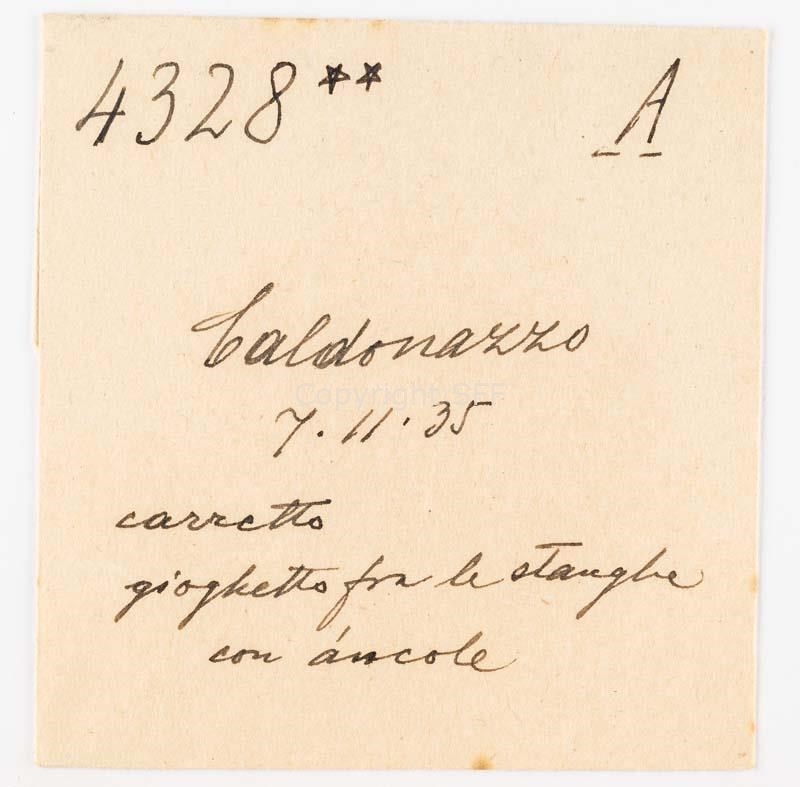 4328** A
Caldonazzo
7.11.35
carretto
gioghetto fra le stanghe
con áncole